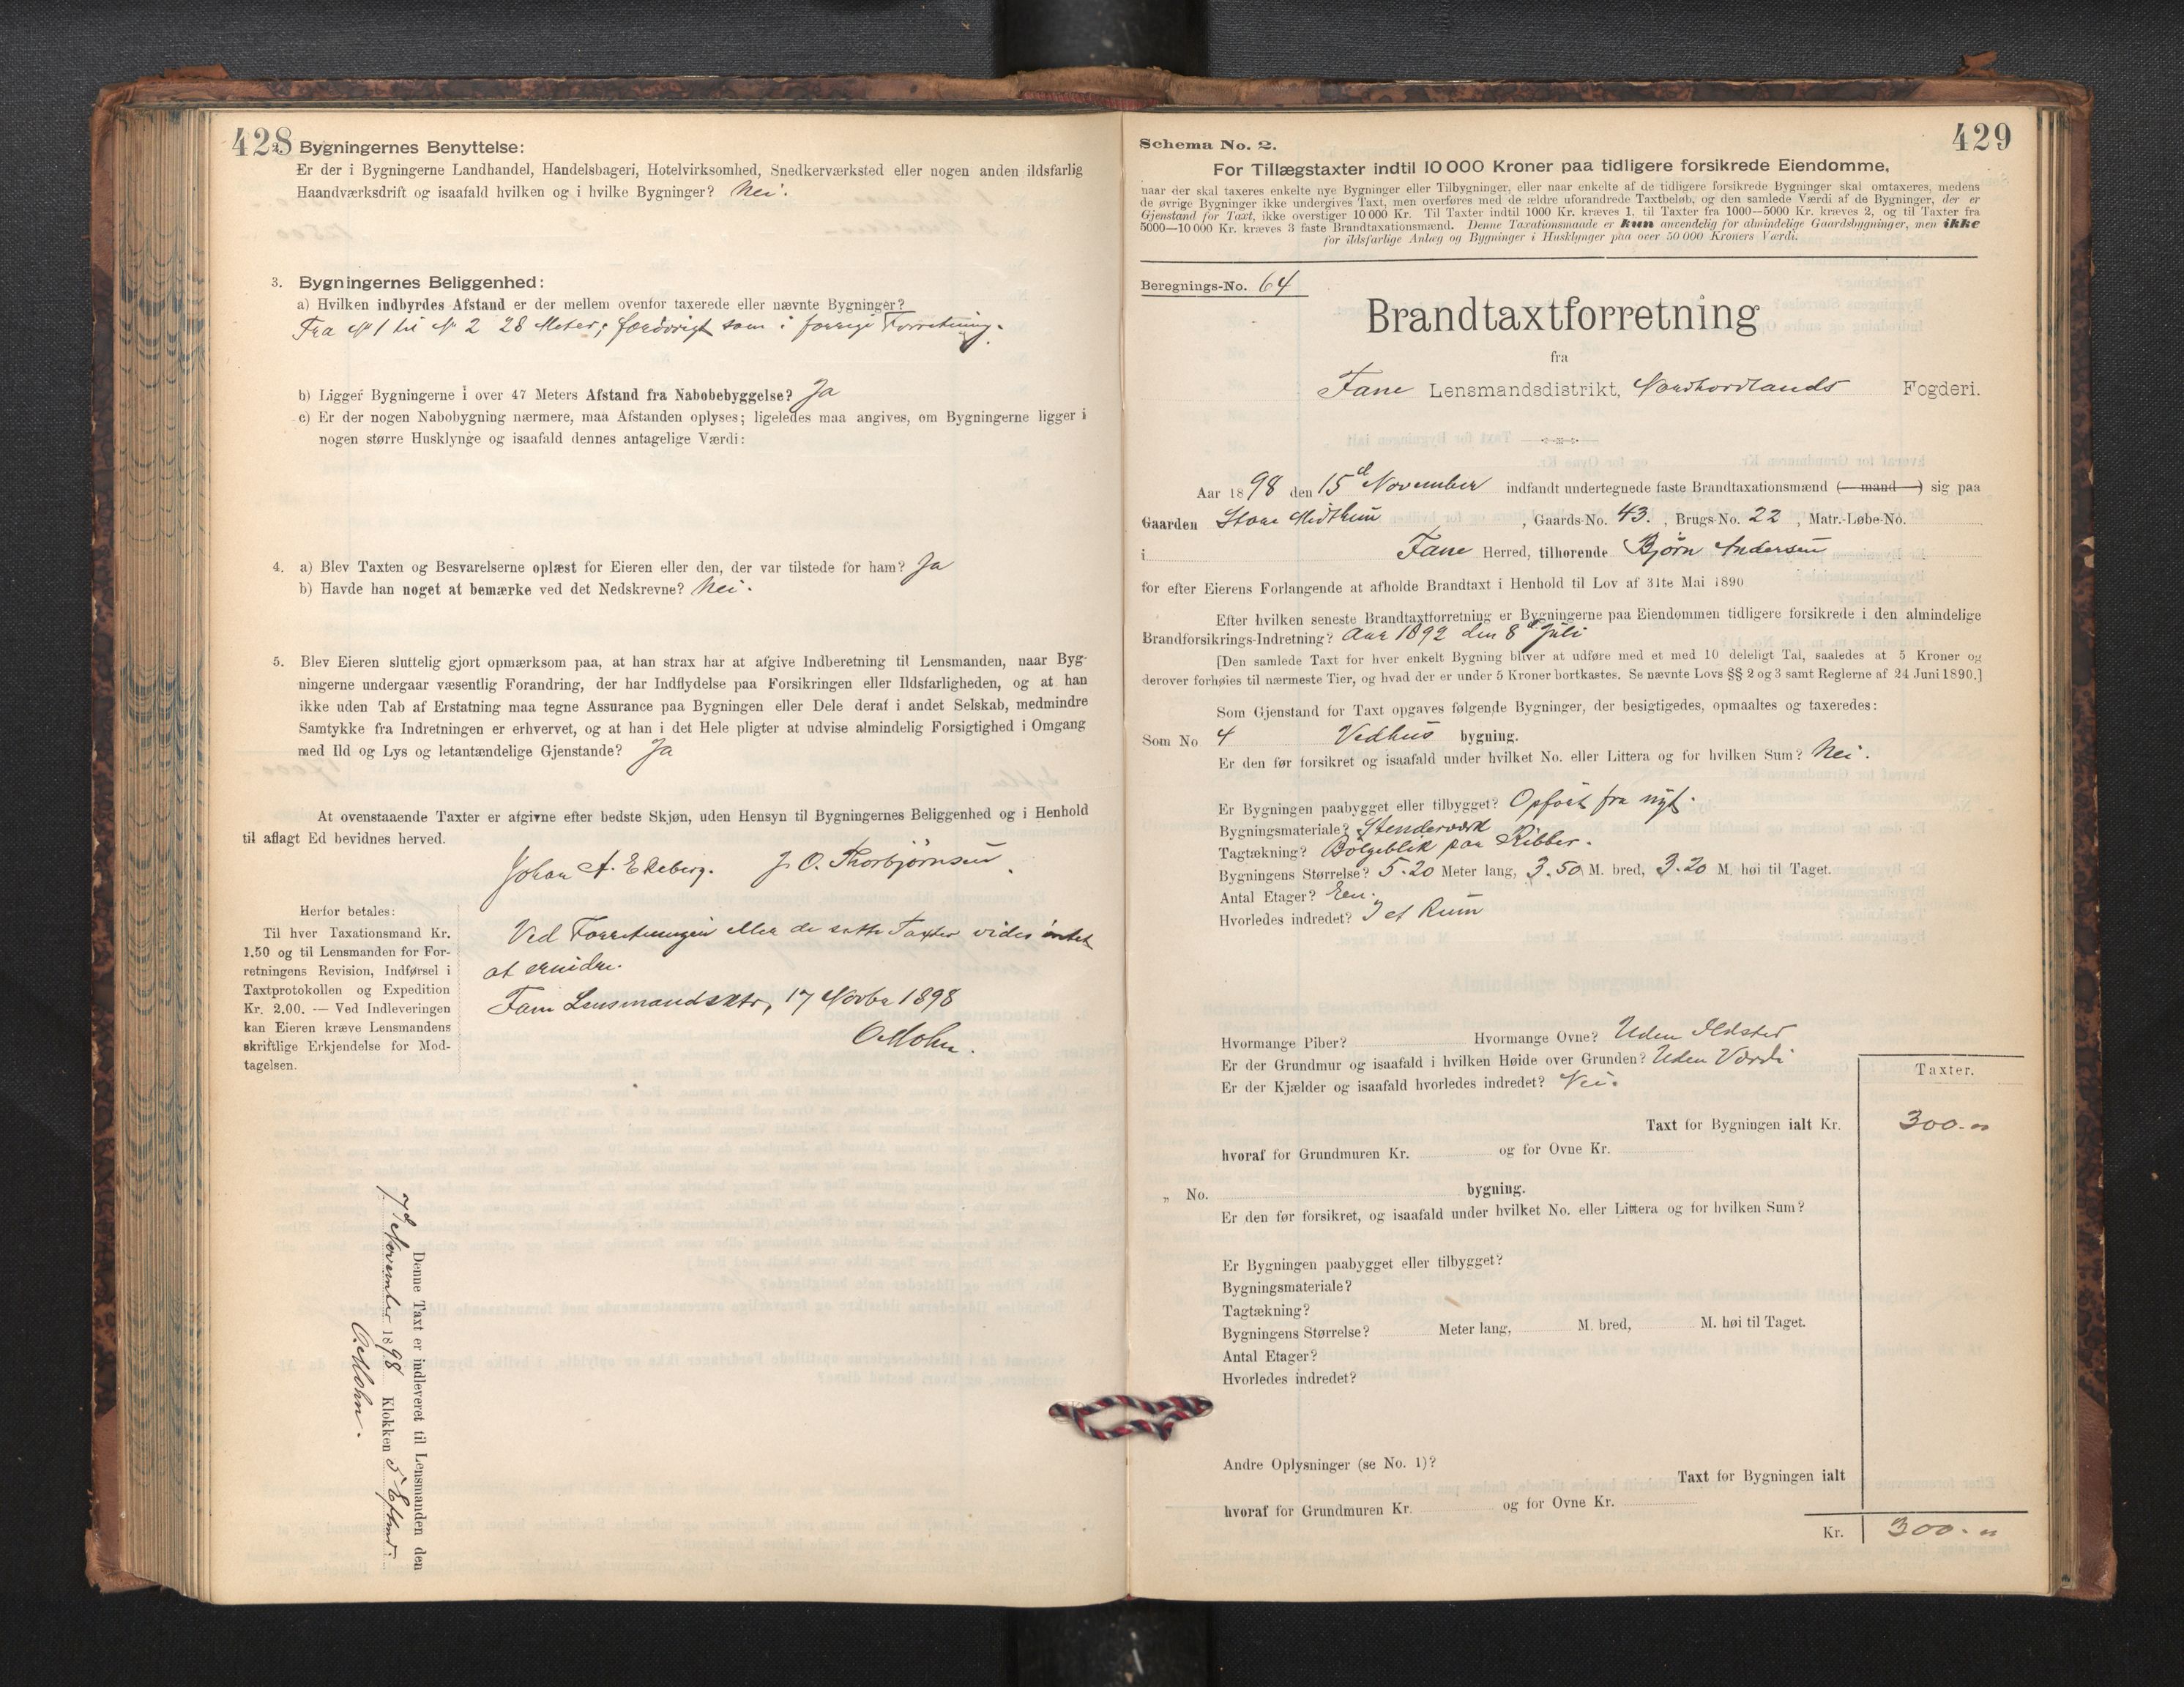 428
2. Bygningernes Benyttelse:
Er der i Bygningerne Landhandel, Handelsbageri, Hotelvirksomhed, Snedkerværksted eller nogen anden ildsfarlig
Haandværksdrift og isaafald hvilken og i hvilke Bygninger? Nei.
3. Bygningernes Beliggenhed:
a) Hvilken indbyrdes Afstand er der mellem ovenfor taxerede eller nævnte Bygninger?
Fra № 1 til № 2 28 Meter; forøvrigt som i forrige Forretning.
b) Ligger Bygningerne i over 47 Meters Afstand fra Nabobebyggelse? Ja
c) Er der nogen Nabobygning nærmere, maa Afstanden oplyses; ligeledes maa angives, om Bygningerne ligger i
nogen større Husklynge og isaafald dennes antagelige Værdi:
4. a) Blev Taxten og Besvarelserne oplæst for Eieren eller den, der var tilstede for ham? Ja
b) Havde han noget at bemærke ved det Nedskrevne? Nei.
5. Blev Eieren sluttelig gjort opmærksom paa, at han strax har at afgive Indberetning til Lensmanden, naar Byg-
ningerne undergaar væsentlig Forandring, der har Indflydelse paa Forsikringen eller Ildsfarligheden, og at han
ikke uden Tab af Erstatning maa tegne Assurance paa Bygningen eller Dele deraf i andet Selskab, medmindre
Samtykke fra Indretningen er erhvervet, og at han i det Hele pligter at udvise almindelig Forsigtighed i Omgang
med Ild og Lys og letantændelige Gjenstande? Ja
At ovenstaaende Taxter er afgivne efter bedste Skjøn, uden Hensyn til Bygningernes Beliggenhed og i Henhold
til aflagt Ed bevidnes herved.
Johan A. Ekeberg. J. O. Thorbjørnsen.
Herfor betales:
Til hver Taxationsmand Kr.
1.50 og til Lensmanden for For-
retningens Revision, Indførsel i
Taxtprotokollen og Expedition
Kr. 2.00. — Ved Indleveringen
kan Eieren kræve Lensmandens
skriftlige Erkjendelse for Mod-
tagelsen.
Ved Forretningen eller de satte Taxter vides intet
at erindre.
Fane Lensmandsktr, 17 Novbr 1898
O Mohn.
Denne Taxt er indleveret til Lensmanden den
17d November 1898 Klokken 5 Eftmd.
O. Mohn.
429
Schema No. 2.
For Tillægstaxter indtil 10 000 Kroner paa tidligere forsikrede Eiendomme,
naar der skal taxeres enkelte nye Bygninger eller Tilbygninger, eller naar enkelte af de tidligere forsikrede Bygninger skal omtaxeres, medens
de øvrige Bygninger ikke undergives Taxt, men overføres med de ældre uforandrede Taxtbeløb, og den samlede Værdi af de Bygninger, der er
Gjenstand for Taxt, ikke overstiger 10 000 Kr. Til Taxter indtil 1000 Kr. kræves 1, til Taxter fra 1000—5000 Kr. kræves 2, og til Taxter fra
5000—10 000 Kr. kræves 3 faste Brandtaxationsmænd. Denne Taxationsmaade er kun anvendelig for almindelige Gaardsbygninger, men ikke
for ildsfarlige Anlæg og Bygninger i Husklynger paa over 50 000 Kroners Værdi.
Beregnings-No. 64
Brandtaxtforretning
fra
Fane Lensmandsdistrikt, Nordhordlands Fogderi.
Aar 1898 den 15d November indfandt undertegnede faste Brandtaxationsmænd (— mand —) sig paa
Gaarden Store Midthun, Gaards-No. 43., Brugs-No. 22, Matr.-Løbe-No.
i Fane Herred, tilhørende Bjørn Andersen
for efter Eierens Forlangende at afholde Brandtaxt i Henhold til Lov af 31te Mai 1890
Efter hvilken seneste Brandtaxtforretning er Bygningerne paa Eiendommen tidligere forsikrede i den almindelige
Brandforsikrings-Indretning? Aar 1892 den 8d Juli
[Den samlede Taxt for hver enkelt Bygning bliver at udføre med et med 10 deleligt Tal, saaledes at 5 Kroner og
derover forhøies til nærmeste Tier, og hvad der er under 5 Kroner bortkastes. Se nævnte Lovs §§ 2 og 3 samt Reglerne af 24 Juni 1890.]
Som Gjenstand for Taxt opgaves følgende Bygninger, der besigtigedes, opmaaltes og taxeredes:
Som No 4 Vedhus bygning.
Er den før forsikret og isaafald under hvilket No. eller Littera og for hvilken Sum? Nei.
Er Bygningen paabygget eller tilbygget? Opført fra nyt.
Bygningsmateriale? Stenderværk
Tagtækning? Bølgeblik paa Ribber.
Bygningens Størrelse? 5.20 Meter lang, 3.50 M. bred, 3.20 M. høi til Taget.
Antal Etager? Een.
Hvorledes indredet? I et Rum
Hvormange Piber? Hvormange Ovne? Uden Ildsted
Er der Grundmur og isaafald i hvilken Høide over Grunden? Uden Værdi
Er der Kjælder og isaafald hvorledes indredet? Nei.
Taxter.
Taxt for Bygningen ialt Kr. 300.„
hvoraf for Grundmuren Kr. og for Ovne Kr.
„ No. bygning.
Er den før forsikret, og isaafald under hvilket No. eller Littera og for hvilken Sum?
Er Bygningen paabygget eller tilbygget?
Bygningsmateriale?
Tagtækning?
Bygningens Størrelse? Meter lang, M. bred, M. høi til Taget.
Antal Etager?
Hvorledes indredet?
Andre Oplysninger (se No. 1)?
Taxt for Bygningen ialt
hvoraf for Grundmuren Kr. og for Ovne Kr.
Kr. 300.„